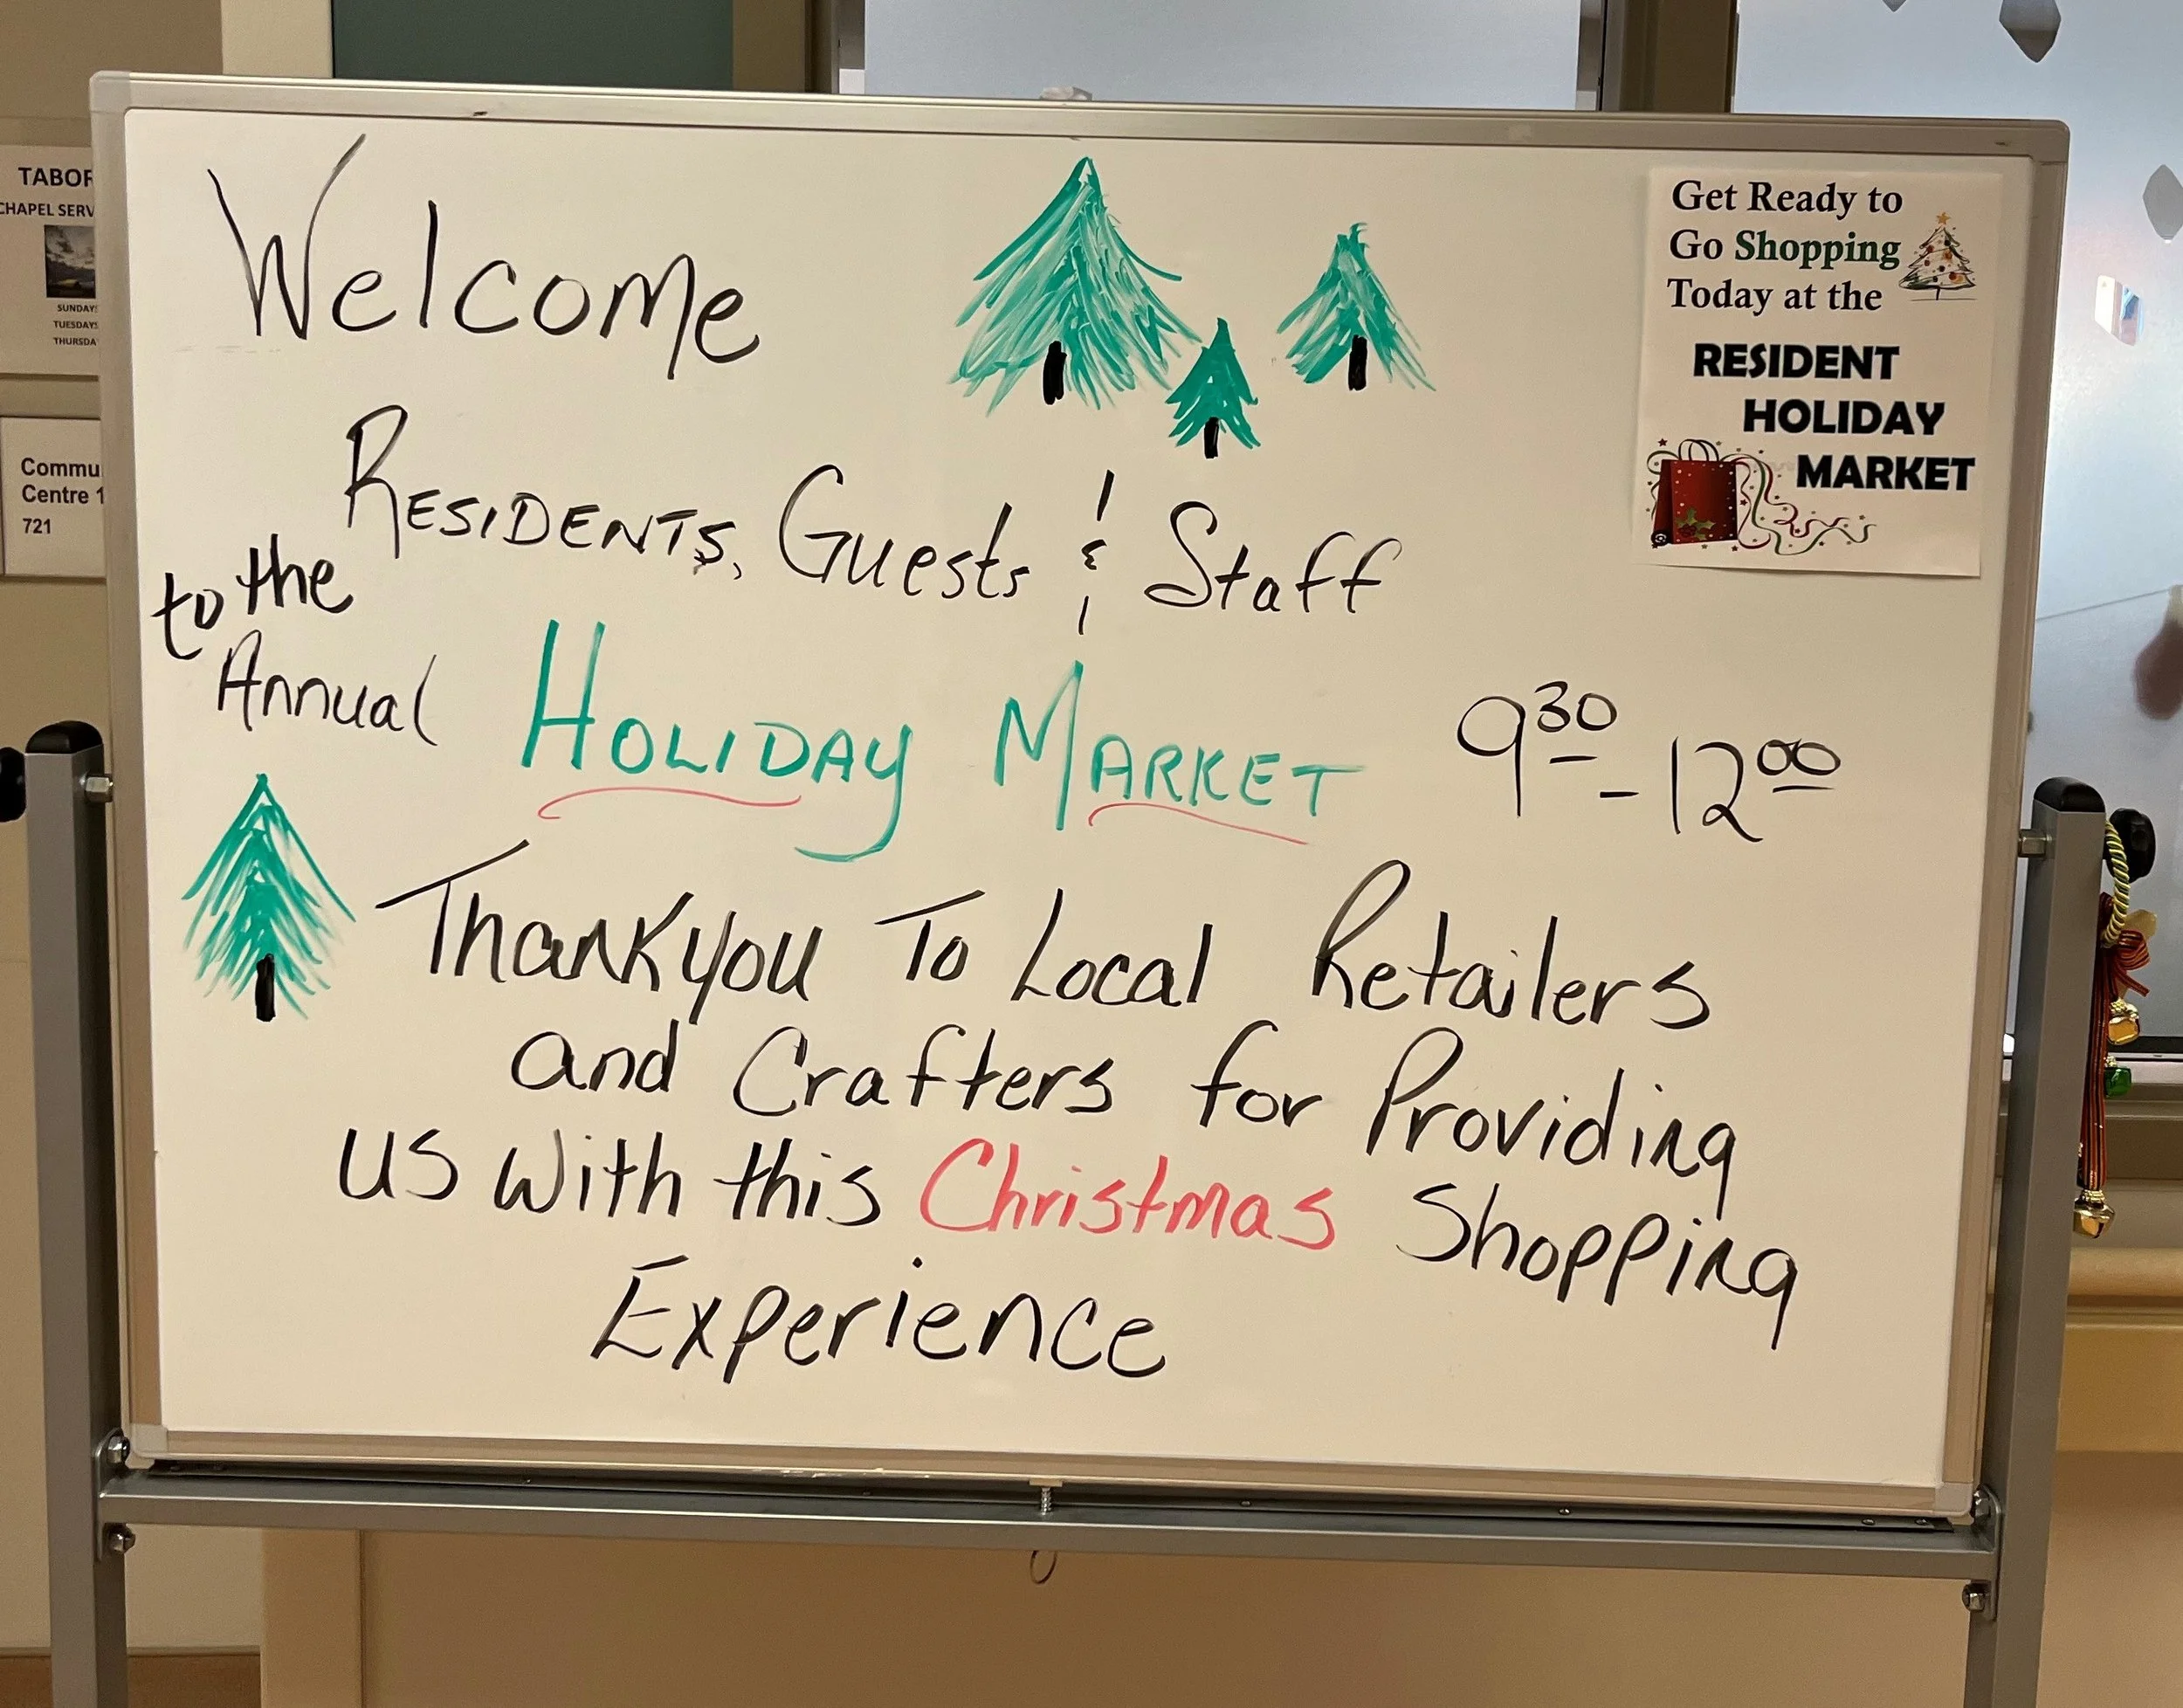 TABOR
CHAPEL SERV
SUNDAYS
TUESDAYS
THURSDA
Commu
Centre 1
721
Welcome
RESIDENTS, Guests & Staff
to the
Annual
HOLIDAY MARKET 9 30 - 12 00
Thankyou To Local Retailers
and Crafters for Providing
us with this Christmas Shopping
Experience
Get Ready to
Go Shopping
Today at the
RESIDENT
HOLIDAY
MARKET